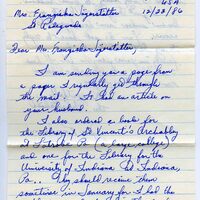 USA
Mrs. Franziska Jägerstätter 12/23/86
St. Radegund
Dear Mrs. Franziska Jägerstätter,
I am sending you a page from
a paper I regularly get through
the mail. It had an article on
your husband.
I also ordered a book for
the Library of St. Vincent's Archabbey
in Latrobe Pa (a large college)
and one for the Library for the
University of Indiana at Indiana,
Pa.. They should receive them
sometime in January for I had the